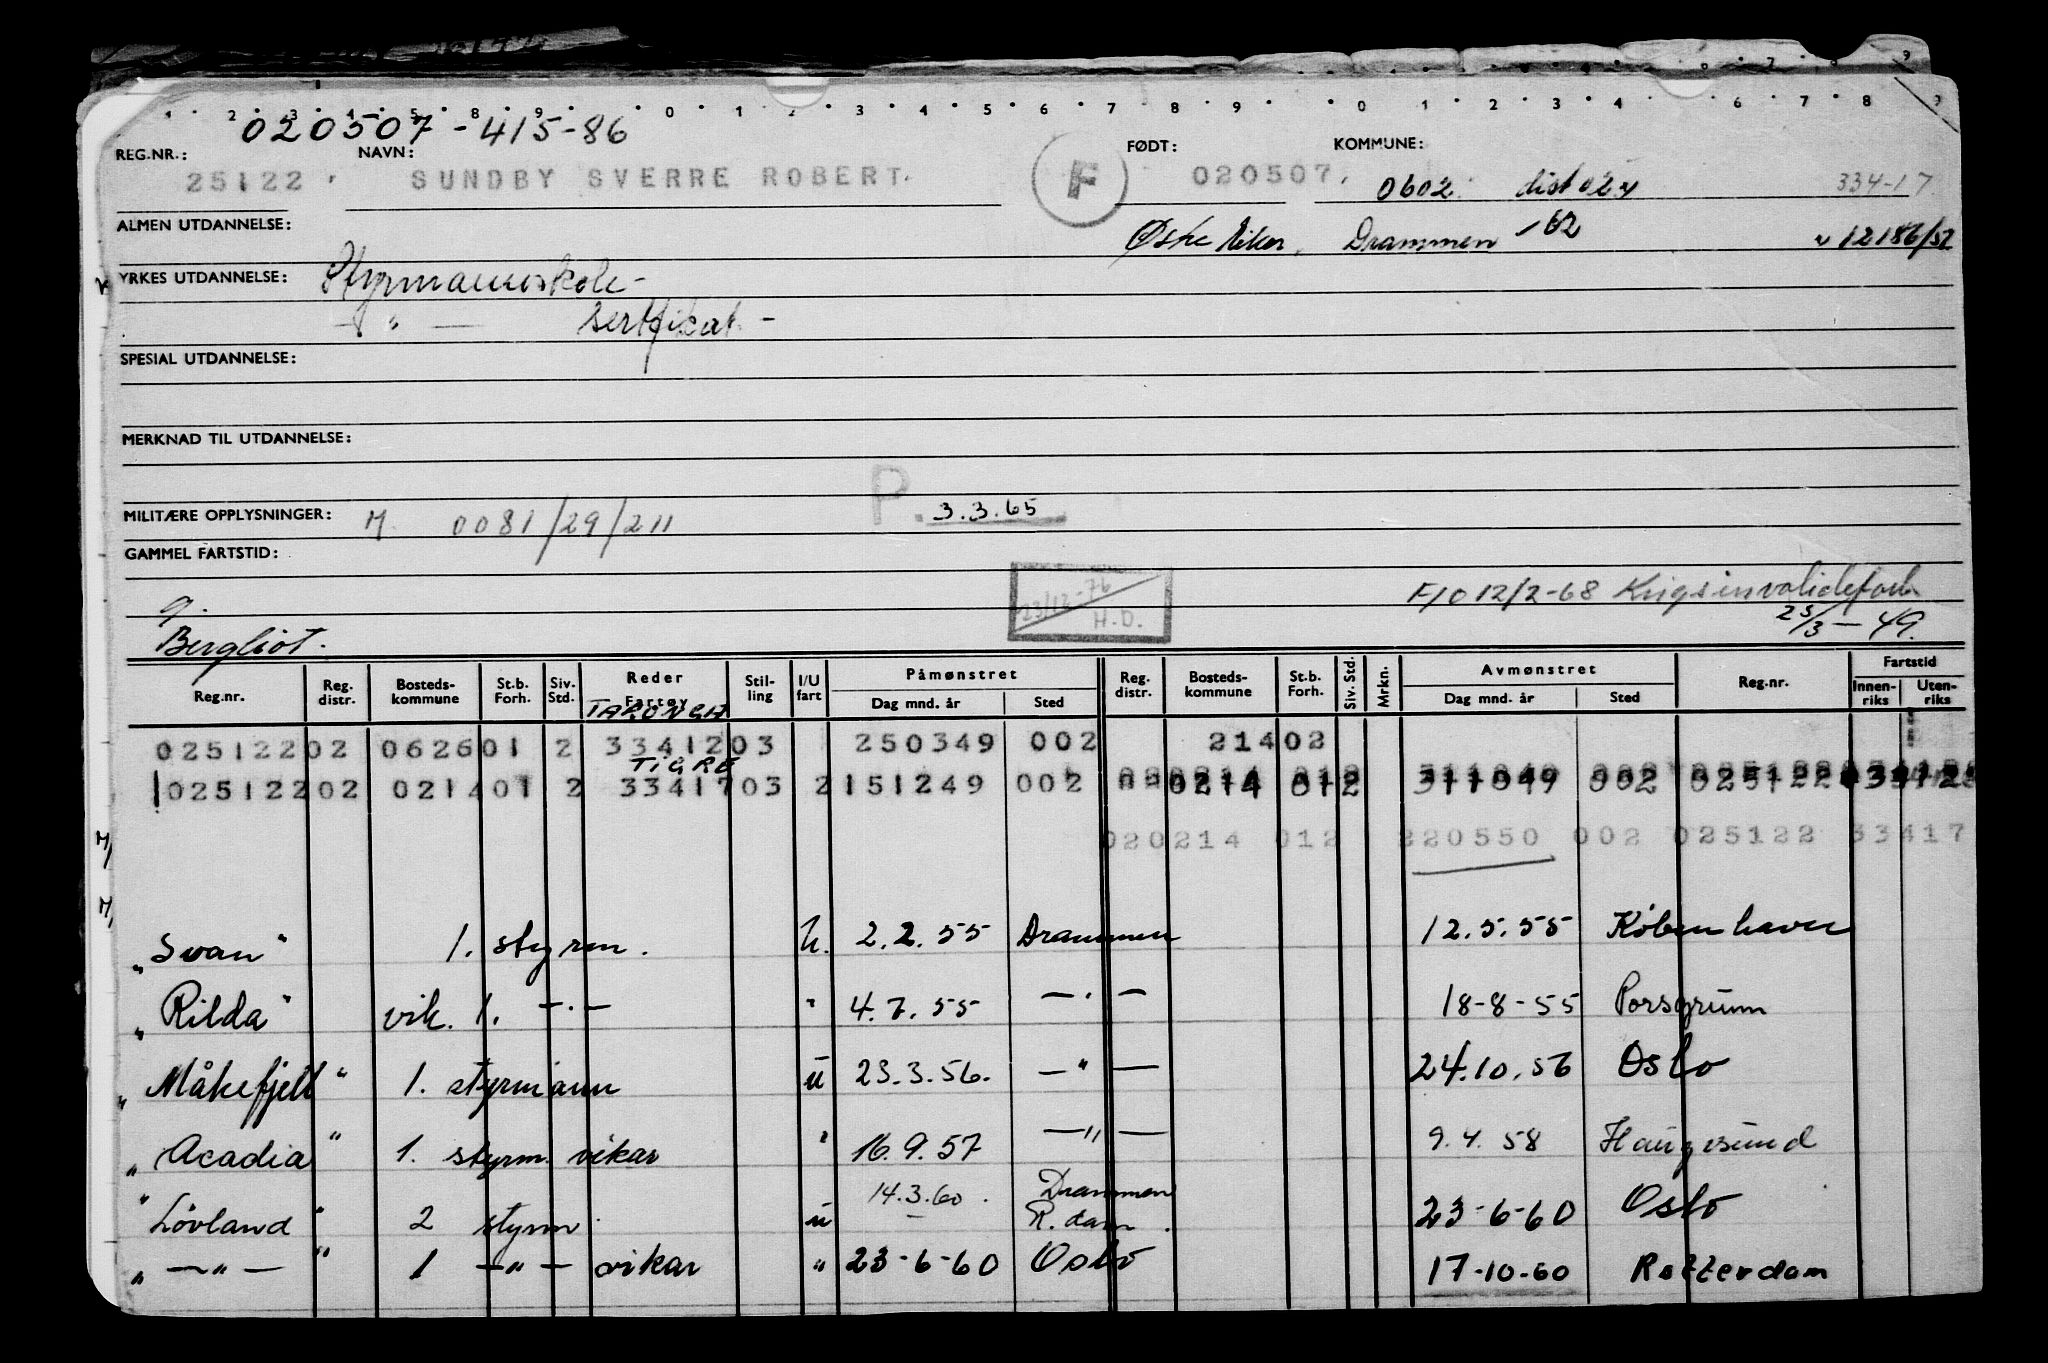 020507-415-86
REG.NR.: NAVN: FØDT: KOMMUNE:
25122 SUNDBY SVERRE ROBERT. F 020507. 0602 334-17
ALMEN UTDANNELSE: Drammen -62 12186/52
YRKES UTDANNELSE: Styrmannskole-
— " — sertfikat -
SPESIAL UTDANNELSE:
MERKNAD TIL UTDANNELSE:
MILITÆRE OPPLYSNINGER: M 0081/29/211 P. 3.3.65
GAMMEL FARTSTID:
23/12-76 H.D.
F/O 12/2-68 Krigsinvalideforb.
g. 25/3-49.
Bergliot.
Reg.nr. Reg. distr. Bosteds- kommune St.b. Forh. Siv. Std. Reder Fartøy Stil- ling I/U fart Påmønstret Dag mnd. år Sted Reg. distr. Bosteds- kommune St.b. Forh. Siv. Std. Mrkn. Avmønstret Dag mnd. år Sted Reg.nr. Fartstid Innen- riks Uten- riks
TARONGA
025122 02 0626 01 2 33412 03 250349 002 214 02
TIGRE
025122 02 0214 01 2 33417 03 2 151249 002 0214 012 311049 002 025122
020214 012 220550 002 025122 33417
"Svan" 1. styrm. U. 2.2.55 Drammen 12.5.55 København
"Rilda" vik. 1. —.— " 4.7.55 —.— 18-8-55 Porsgrunn
"Måkefjell" 1. styrmann u 23.3.56. —"— 24.10.56 Oslo
"Acadia" 1. styrm. vikar " 16.9.57 —"— 9.4.58 Haugesund
"Lövland" 2 styrm. u 14.3.60. Drammen R.dam. 23-6-60 Oslo
"—"—" 1 —"— vikar " 23-6-60 Oslo 17-10-60 Rotterdam